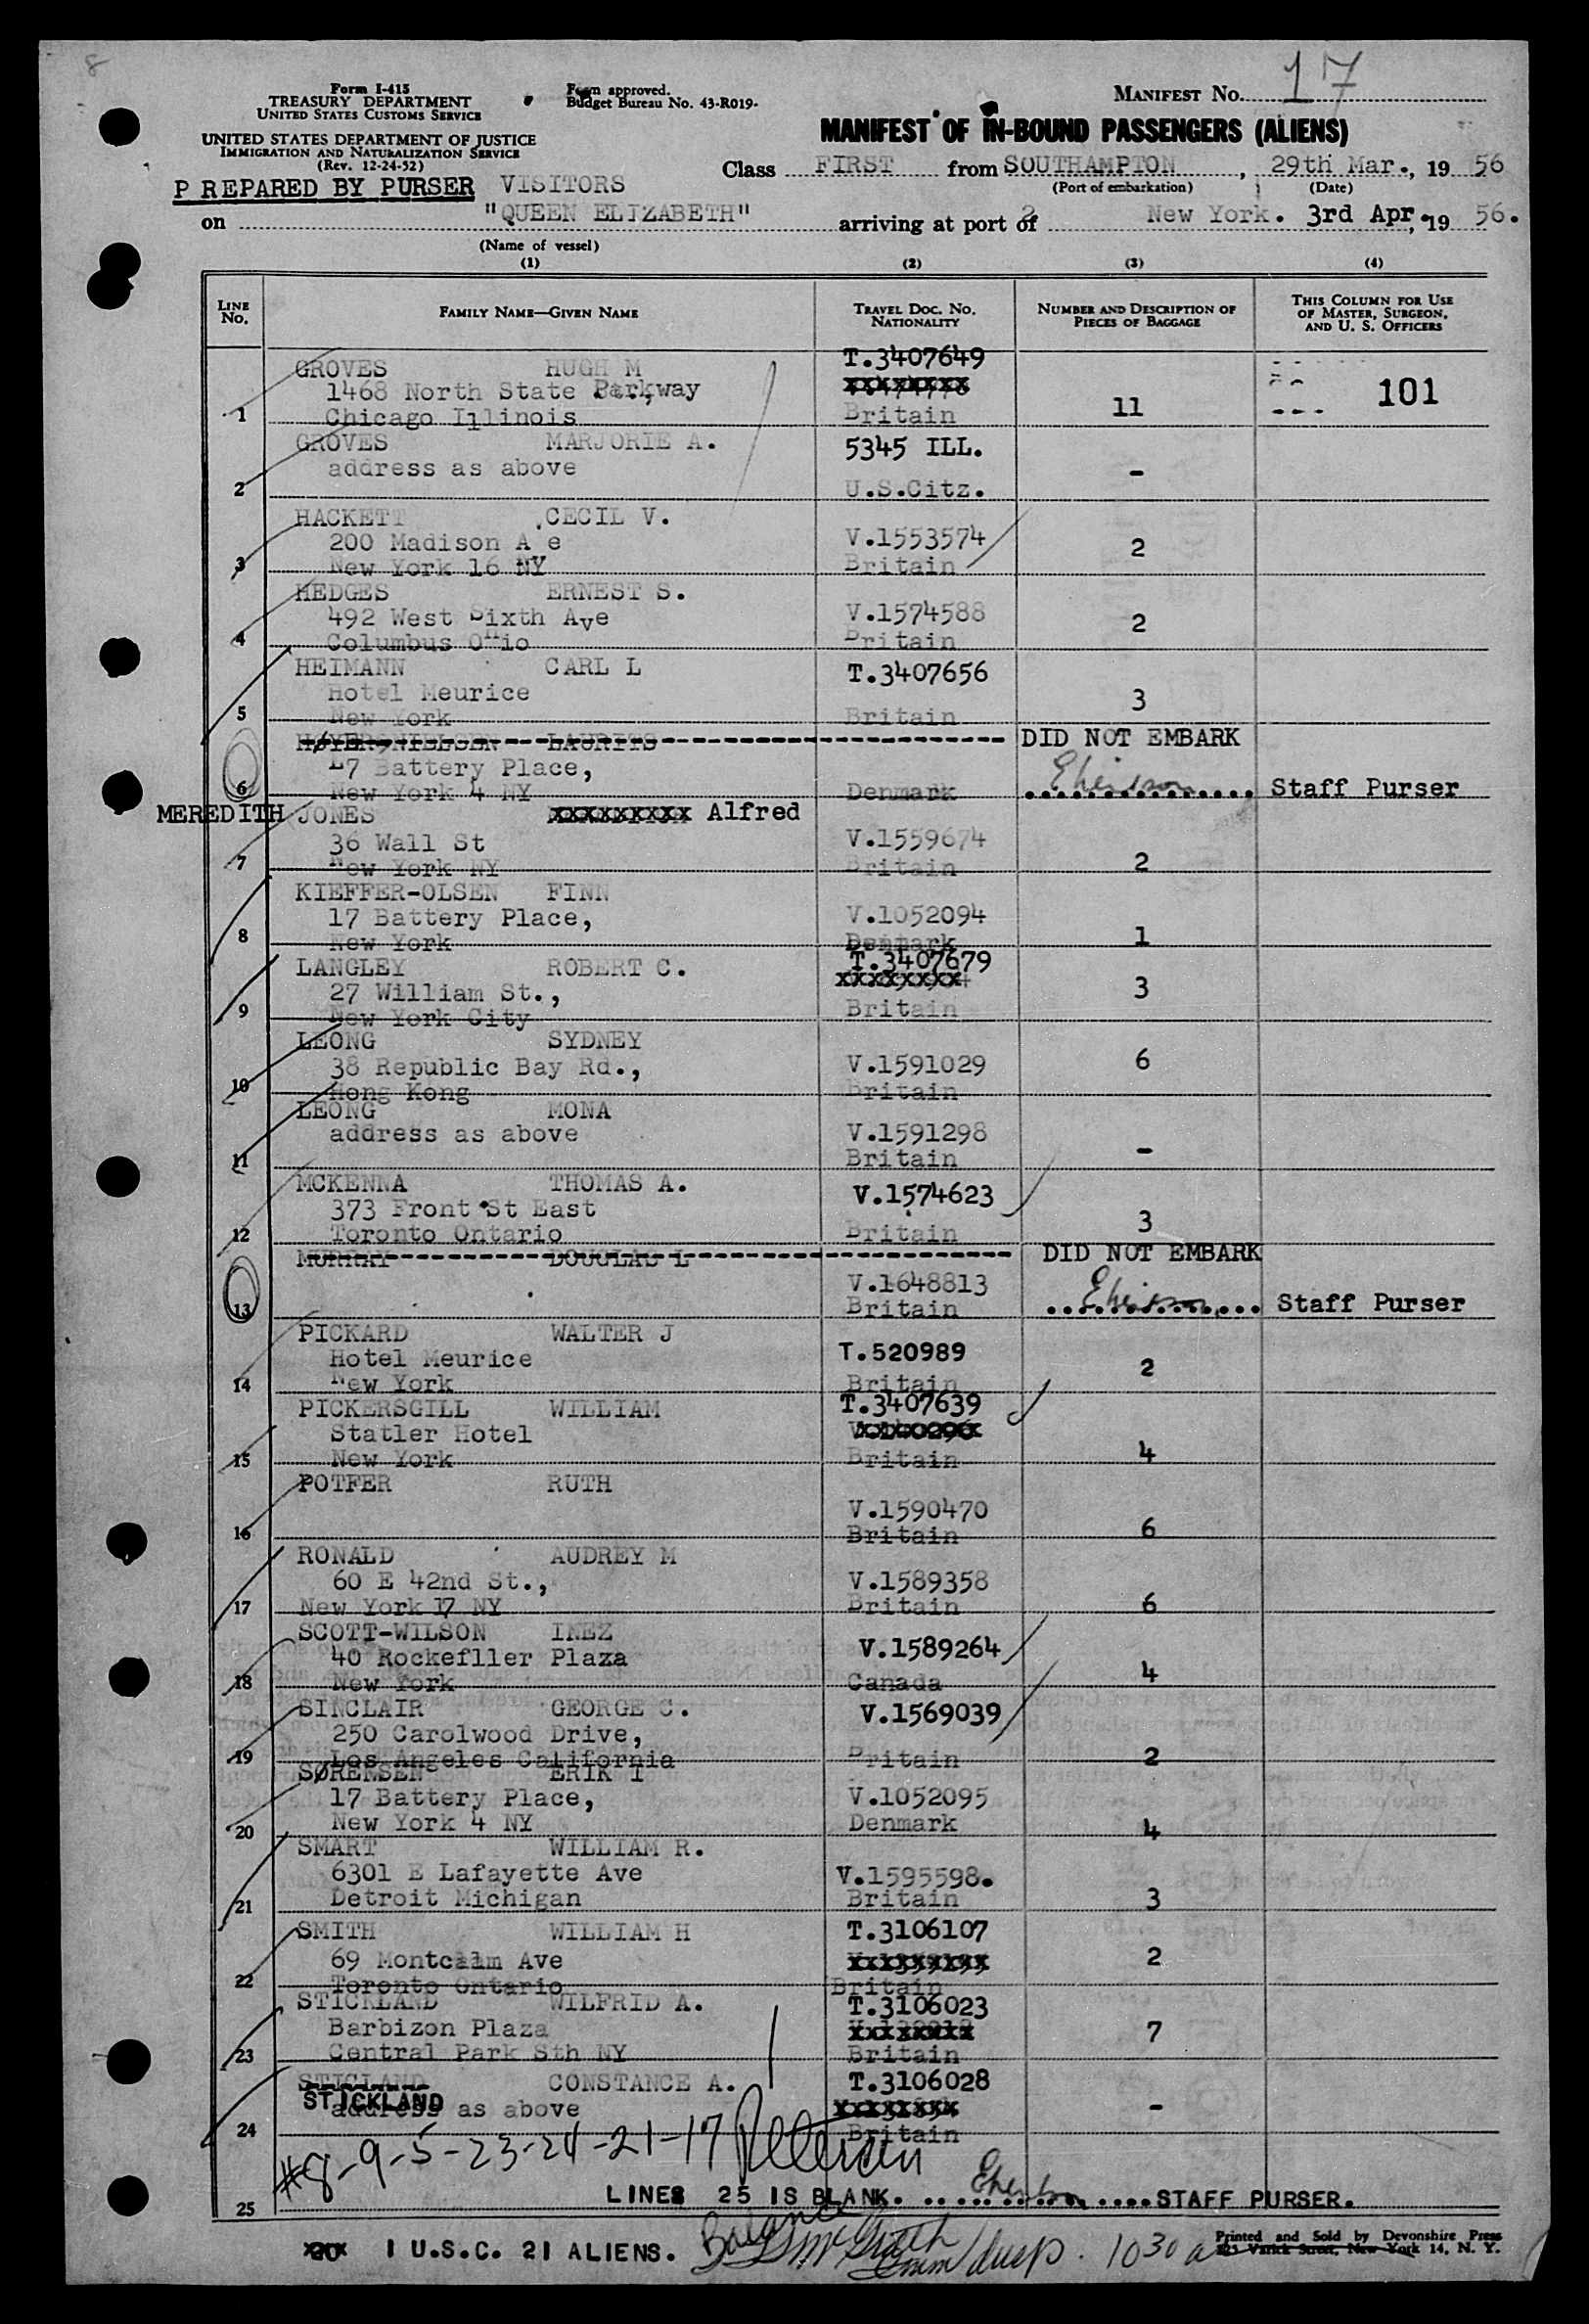 8
Form I-415
TREASURY DEPARTMENT
UNITED STATES CUSTOMS SERVICE
UNITED STATES DEPARTMENT OF JUSTICE
IMMIGRATION AND NATURALIZATION SERVICE
(Rev. 12-24-52)
Form approved.
Budget Bureau No. 43-R019-
MANIFEST No. 17
MANIFEST OF IN-BOUND PASSENGERS (ALIENS)
PREPARED BY PURSER VISITORS
Class FIRST from SOUTHAMPTON, 29th Mar., 19 56
(Port of embarkation) (Date)
on "QUEEN ELIZABETH" arriving at port of New York. 3rd Apr., 19 56.
(Name of vessel)
(1) (2) (3) (4)
LINE No. FAMILY NAME—GIVEN NAME TRAVEL DOC. NO. NATIONALITY NUMBER AND DESCRIPTION OF PIECES OF BAGGAGE THIS COLUMN FOR USE OF MASTER, SURGEON, AND U. S. OFFICERS
GROVES HUGH M T.3407649
1468 North State Parkway xxxxxxxx
1 Chicago Illinois Britain 11 101
GROVES MARJORIE A. 5345 ILL.
address as above -
2 U.S.Citz.
HACKETT CECIL V.
200 Madison A e V.1553574 2
3 New York 16 NY Britain
HEDGES ERNEST S.
492 West Sixth Ave V.1574588 2
4 Columbus Ohio Britain
HEIMANN CARL L T.3407656
Hotel Meurice 3
5 New York Britain
HØYER-NIELSEN LAURITS DID NOT EMBARK
17 Battery Place,
6 New York 4 NY Denmark Staff Purser
MEREDITH JONES xxxxxxxxx Alfred
36 Wall St V.1559674
7 New York NY Britain 2
KIEFFER-OLSEN FINN
17 Battery Place, V.1052094
8 New York Denmark 1
LANGLEY ROBERT C. T.3407679
27 William St., xxxxxxxx 3
9 New York City Britain
LEONG SYDNEY
38 Republic Bay Rd., V.1591029 6
10 Hong Kong Britain
LEONG MONA
address as above V.1591298
11 Britain -
MCKENNA THOMAS A. V.1574623
373 Front St East
12 Toronto Ontario Britain 3
MURRAY DOUGLAS L DID NOT EMBARK
V.1648813
13 Britain Staff Purser
PICKARD WALTER J
Hotel Meurice T.520989 2
14 New York Britain
PICKERSGILL WILLIAM T.3407639
Statler Hotel
15 New York Britain 4
POTFER RUTH
V.1590470
16 Britain 6
RONALD AUDREY M
60 E 42nd St., V.1589358
17 New York 17 NY Britain 6
SCOTT-WILSON INEZ
40 Rockefller Plaza V.1589264
18 New York Canada 4
SINCLAIR GEORGE C. V.1569039
250 Carolwood Drive,
19 Los Angeles California Britain 2
SØRENSEN ERIK I
17 Battery Place, V.1052095
20 New York 4 NY Denmark 4
SMART WILLIAM R.
6301 E Lafayette Ave V.1595598.
21 Detroit Michigan Britain 3
SMITH WILLIAM H T.3106107
69 Montcalm Ave 2
22 Toronto Ontario Britain
STICKLAND WILFRID A. T.3106023
Barbizon Plaza xxxxxxxx 7
23 Central Park Sth NY Britain
STICLAND CONSTANCE A. T.3106028
STICKLAND
address as above xxxxxxxx -
24 Britain
#8-9-5-23-24-21-17 Petersen
25 LINES 25 IS BLANK. STAFF PURSER.
1 U.S.C. 21 ALIENS. Balance
McGrath
1030 a
Printed and Sold by Devonshire Press
225 Varick Street, New York 14, N. Y.